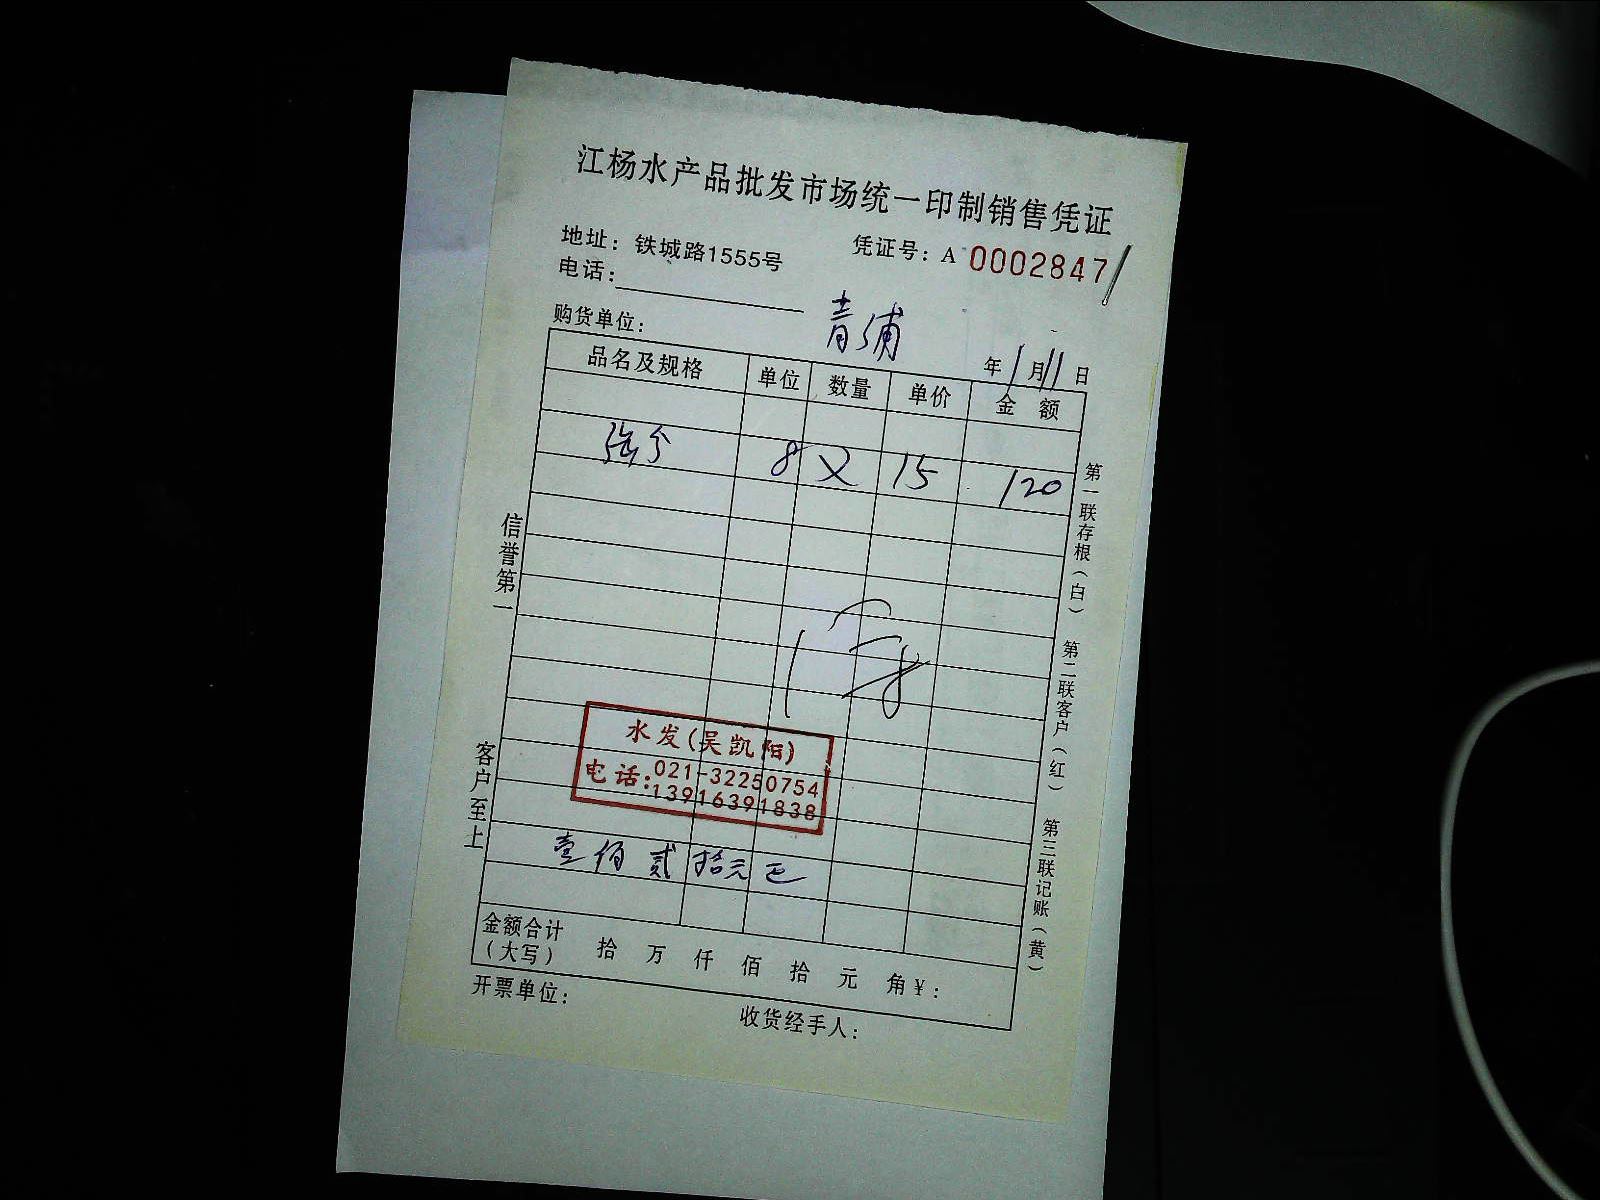 江杨水产品批发市场统一印制销售凭证
地址：铁城路1555号 凭证号：A 0002847
电话：
购货单位： 青浦 年 1 月 11 日
品名及规格 单位 数量 单价 金 额
8 又 15 120
水发(吴凯阳)
电话:021-32250754
13916391838
壹佰贰拾元正
金额合计（大写） 拾 万 仟 佰 拾 元 角 ¥：
开票单位： 收货经手人：
信誉第一
客户至上
第一联存根（白） 第二联客户（红） 第三联记账（黄）